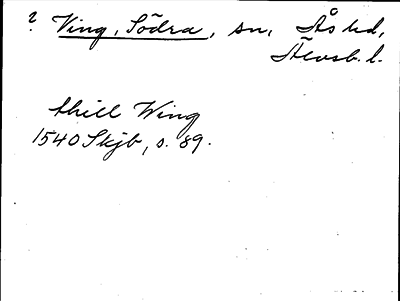 ? Ving, Södra, sn, Ås hd,
Älvsb. l.
thill Wing
1540 Skjb, s. 89.